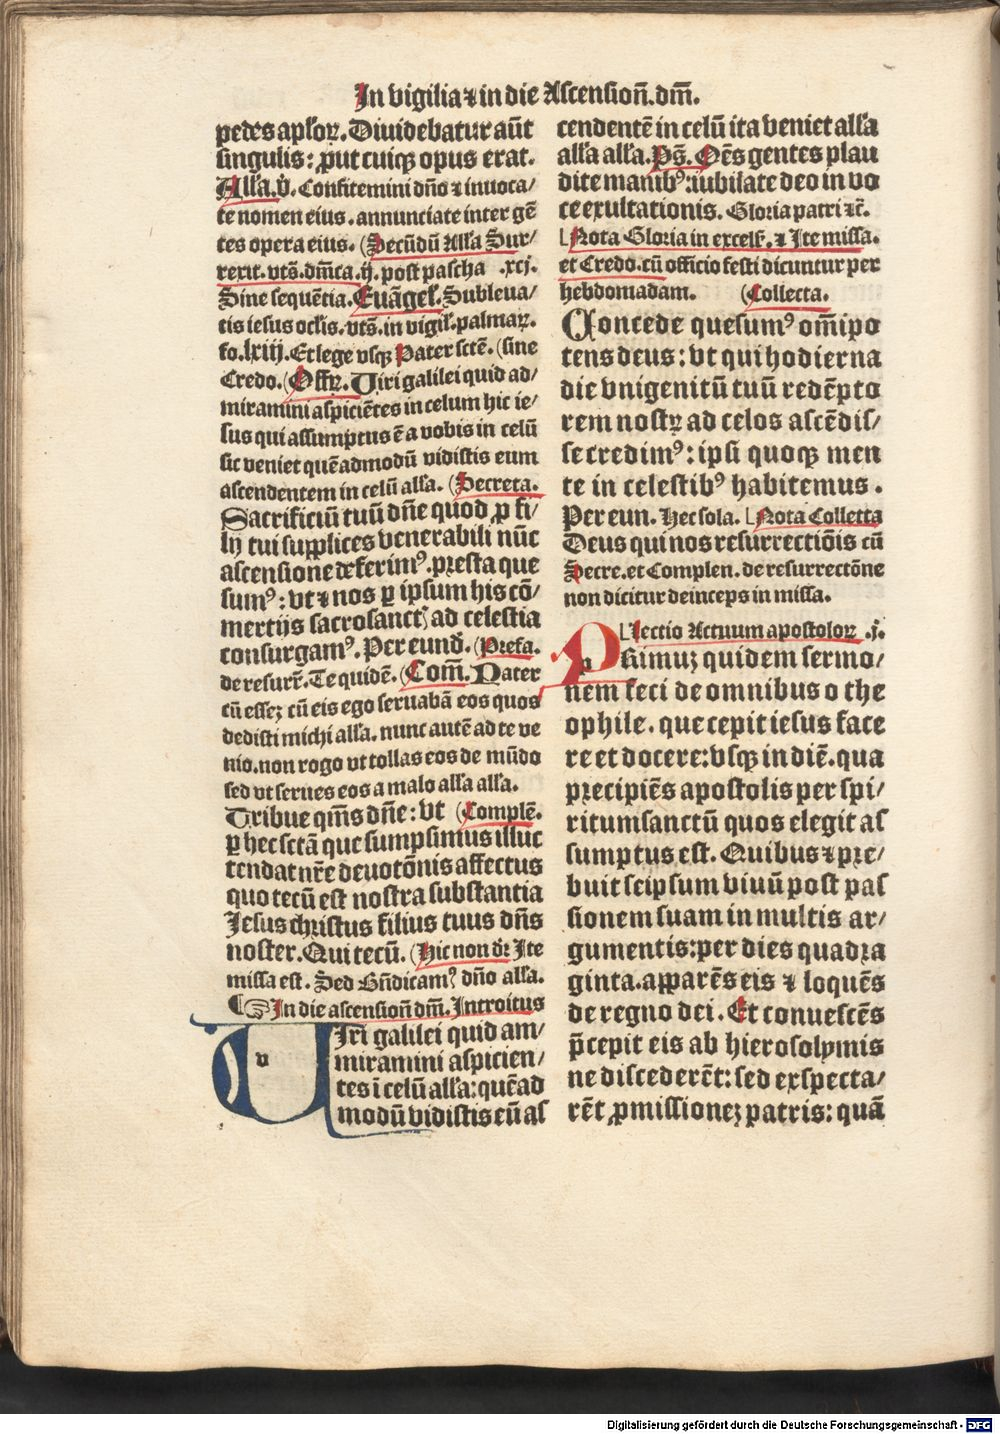 In vigilia ⁊ in die Ascensioñ. dm̃.
pedes apl'oꝝ. Diuidebatur aũt
singulis: ꝓut cuiqꝫ opus erat.
All'a. v̉. Confitemini dño ⁊ inuoca/
te nomen eius. annunciate inter gẽ
tes opera eius. (Secũdũ All'a Sur/
rexit. vts̃. dm̃ca .ij. post pascha .xcj.
Sine sequẽtia. Euãgel'. Subleua/
tis iesus ocl'is. vts̃. in vigil'. palmaꝝ.
fo. lxiij. Et lege vsqꝫ Pater sctẽ. (sine
Credo. (Offꝝ. Uiri galilei quid ad/
miramini aspiciẽtes in celum hic ie/
sus qui assumptus ẽ a vobis in celũ
sic veniet quẽadmodũ vidistis eum
ascendentem in celũ all'a. (Secreta.
Sacrificiũ tuũ dñe quod ꝓ fi/
lij tui supplices venerabili nũc
ascensione deferimꝰ. presta que
sumꝰ: vt ⁊ nos ꝑ ipsum his cõ/
mertijs sacrosanctꝭ ad celestia
consurgamꝰ. Per eund̃. (Prefa.
de resurr̃. Te quidẽ. (Com̃. Pater
cũ esseꝫ cũ eis ego seruabã eos quos
dedisti michi all'a. nunc autẽ ad te ve
nio. non rogo vt tollas eos de mũdo
sed vt serues eos a malo all'a all'a.
Tribue qm̃s dñe: vt (Complẽ.
ꝑ hec sctã que sumpsimus illuc
tendat nr̃e deuotõnis affectus
quo tecũ est nostra substantia
Jesus christus filius tuus dñs
noster. Qui tecũ. (Hic non dr̃ Ite
missa est. Sed Bñdicamꝰ dño all'a.
¶☞ In die ascensioñ dm̃. Introitus
v Iri galilei quid am/
miramini aspicien/
tes ĩ celũ all'a: quẽad
modũ vidistis eũ as
cendentẽ in celũ ita veniet all'a
all'a all'a. Ps̃. Oẽs gentes plau
dite manibꝰ: iubilate deo in vo
ce exultationis. Gloria patri ⁊c̃.
⌊Nota Gloria in excels'. ⁊ Ite missa.
et Credo. cũ officio festi dicuntur per
hebdomadam. (Collecta.
Concede quesumꝰ om̃ipo
tens deus: vt qui hodierna
die vnigenitũ tuũ redẽpto
rem nostꝝ ad celos ascẽdis/
se credimꝰ: ipsi quoqꝫ men
te in celestibꝰ habitemus.
Per eun. Hec sola. ⌊Nota Collecta
Deus qui nos resurrectiõis cũ
Secre. et Complen. de resurrectõne
non dicitur deinceps in missa.
⌊Lectio Actuum apostoloꝝ .j.
p Rimuꝫ quidem sermo/
nem feci de omnibus o the
ophile. que cepit iesus face
re et docere: vsqꝫ in diẽ. qua
precipiẽs apostolis per spi/
ritum sanctũ quos elegit as
sumptus est. Quibus ⁊ pre/
buit seipsum viuũ post pas
sionem suam in multis ar/
gumentis: per dies quadra
ginta. apparẽs eis ⁊ loquẽs
de regno dei. Et conuescẽs
p̃cepit eis ab hierosolymis
ne discederẽt: sed exspecta/
rẽt ꝓmissioneꝫ patris: quã
Digitalisierung gefördert durch die Deutsche Forschungsgemeinschaft - DFG